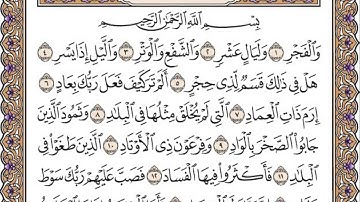 بِسْمِ ٱللَّهِ ٱلرَّحْمَٰنِ ٱلرَّحِيمِ
وَٱلْفَجْرِ ١ وَلَيَالٍ عَشْرٍ ٢ وَٱلشَّفْعِ وَٱلْوَتْرِ ٣ وَٱلَّيْلِ إِذَا يَسْرِ ٤
هَلْ فِي ذَٰلِكَ قَسَمٌ لِّذِي حِجْرٍ ٥ أَلَمْ تَرَ كَيْفَ فَعَلَ رَبُّكَ بِعَادٍ ٦
إِرَمَ ذَاتِ ٱلْعِمَادِ ٧ ٱلَّتِي لَمْ يُخْلَقْ مِثْلُهَا فِي ٱلْبِلَٰدِ ٨ وَثَمُودَ ٱلَّذِينَ
جَابُوا۟ ٱلصَّخْرَ بِٱلْوَادِ ٩ وَفِرْعَوْنَ ذِي ٱلْأَوْتَادِ ١٠ ٱلَّذِينَ طَغَوْا۟ فِي
ٱلْبِلَٰدِ ١١ فَأَكْثَرُوا۟ فِيهَا ٱلْفَسَادَ ١٢ فَصَبَّ عَلَيْهِمْ رَبُّكَ سَوْطَ